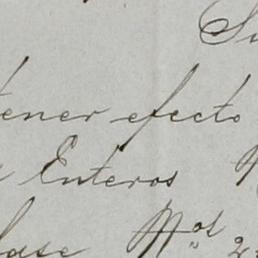 Su
tener efecto
Enteros
lase Nos 2